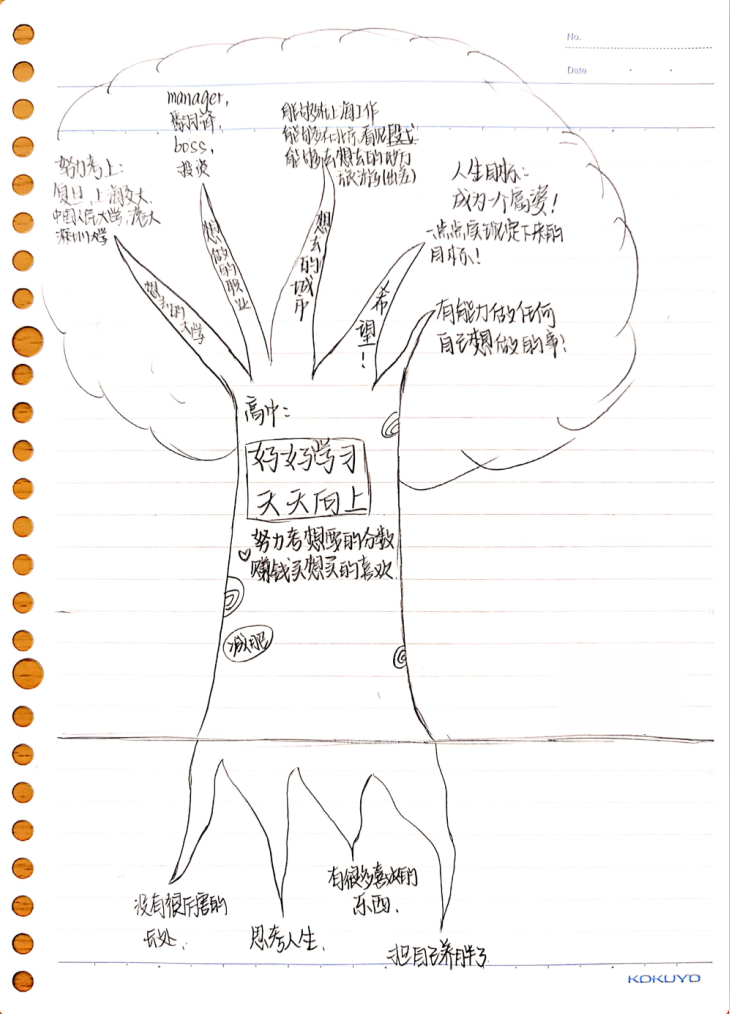 No.
Date
manager,
boss,
投资
能够在上海工作
能够在北京看见
能够去想去的城市
旅游(出差)
努力考上:
复旦,上海交大,
中国人民大学,港大
深圳大学
人生目标:
成为一个富婆!
一点点实现定下来的
目标!
有能力做任何
自己想做的事!
想去的大学
想做的职业
想去的城市
希望!
高中:
好好学习
天天向上
努力考想要的分数
赚钱买想买的喜欢
减肥
没有很厉害的
长处.
思考人生.
有很多喜欢的
东西.
把自己养胖了
KOKUYO